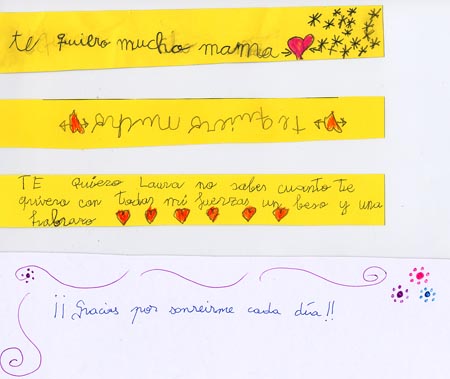 te quiero mucho mama
te quiero mucho
TE quiero Laura no saber cuanto te
quiero con todas mi fuerzas un beso y una
habrazo
¡¡Gracias por sonreirme cada día!!